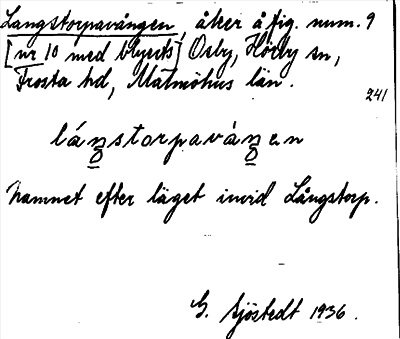 Langstorpavången, åker å fig. num. 9
[nr 10 med blyerts] Osby, Hörby sn,
Frosta hd, Malmöhus län.
241
Namnet efter läget invid Långstorp.
G. Sjöstedt 1936.